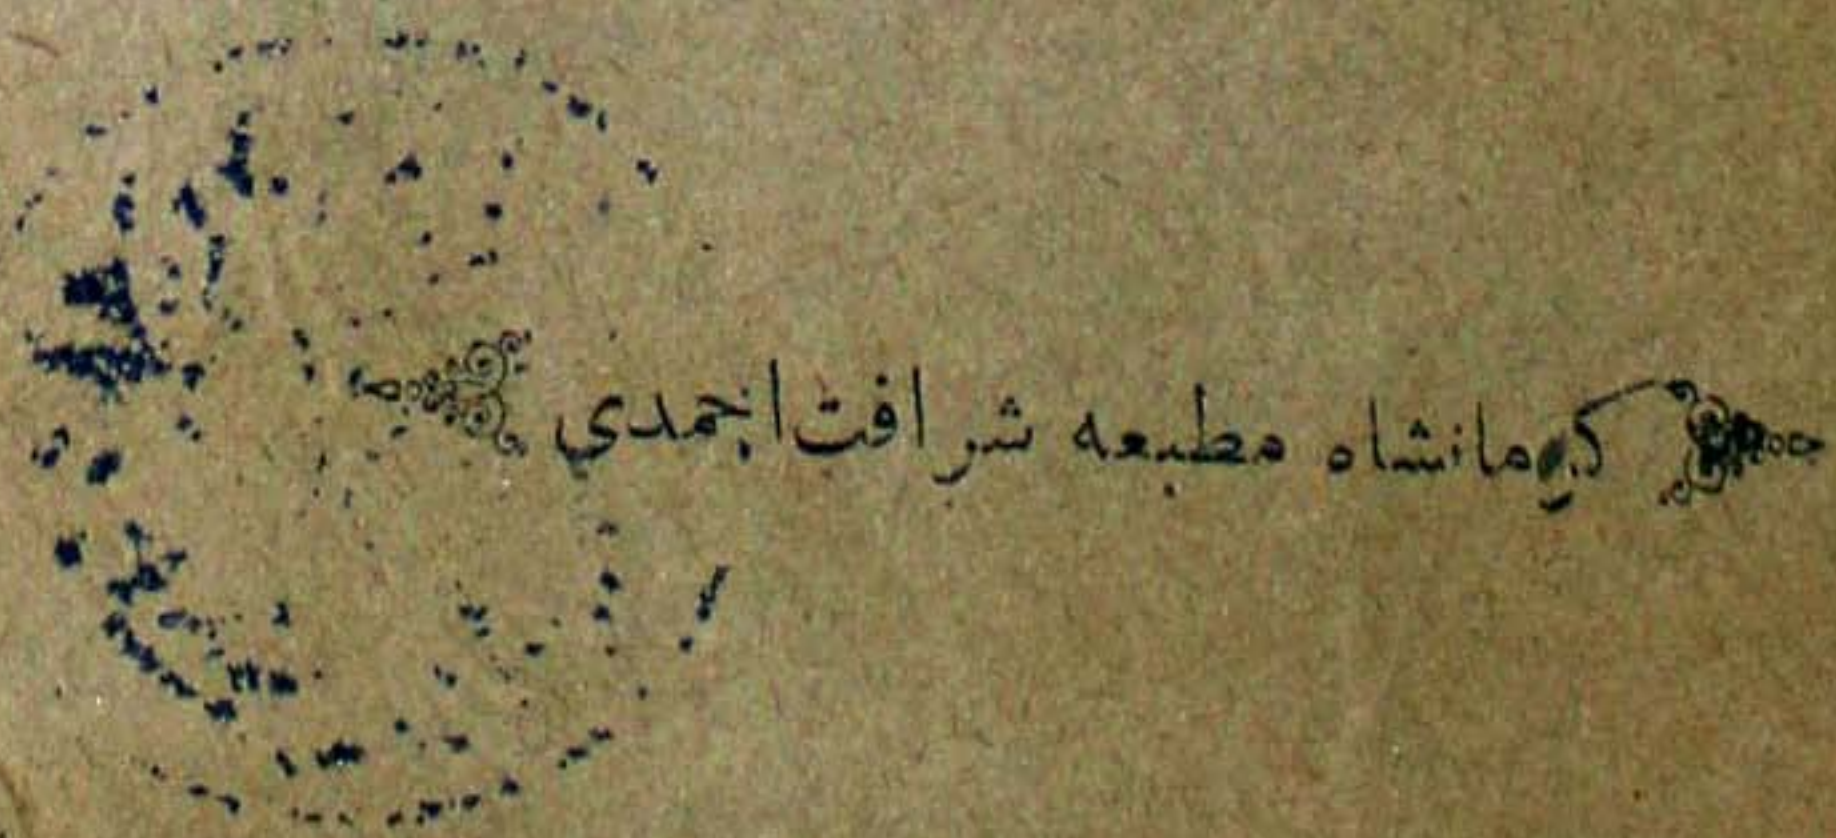 کرمانشاه مطبعه شرافت احمدی